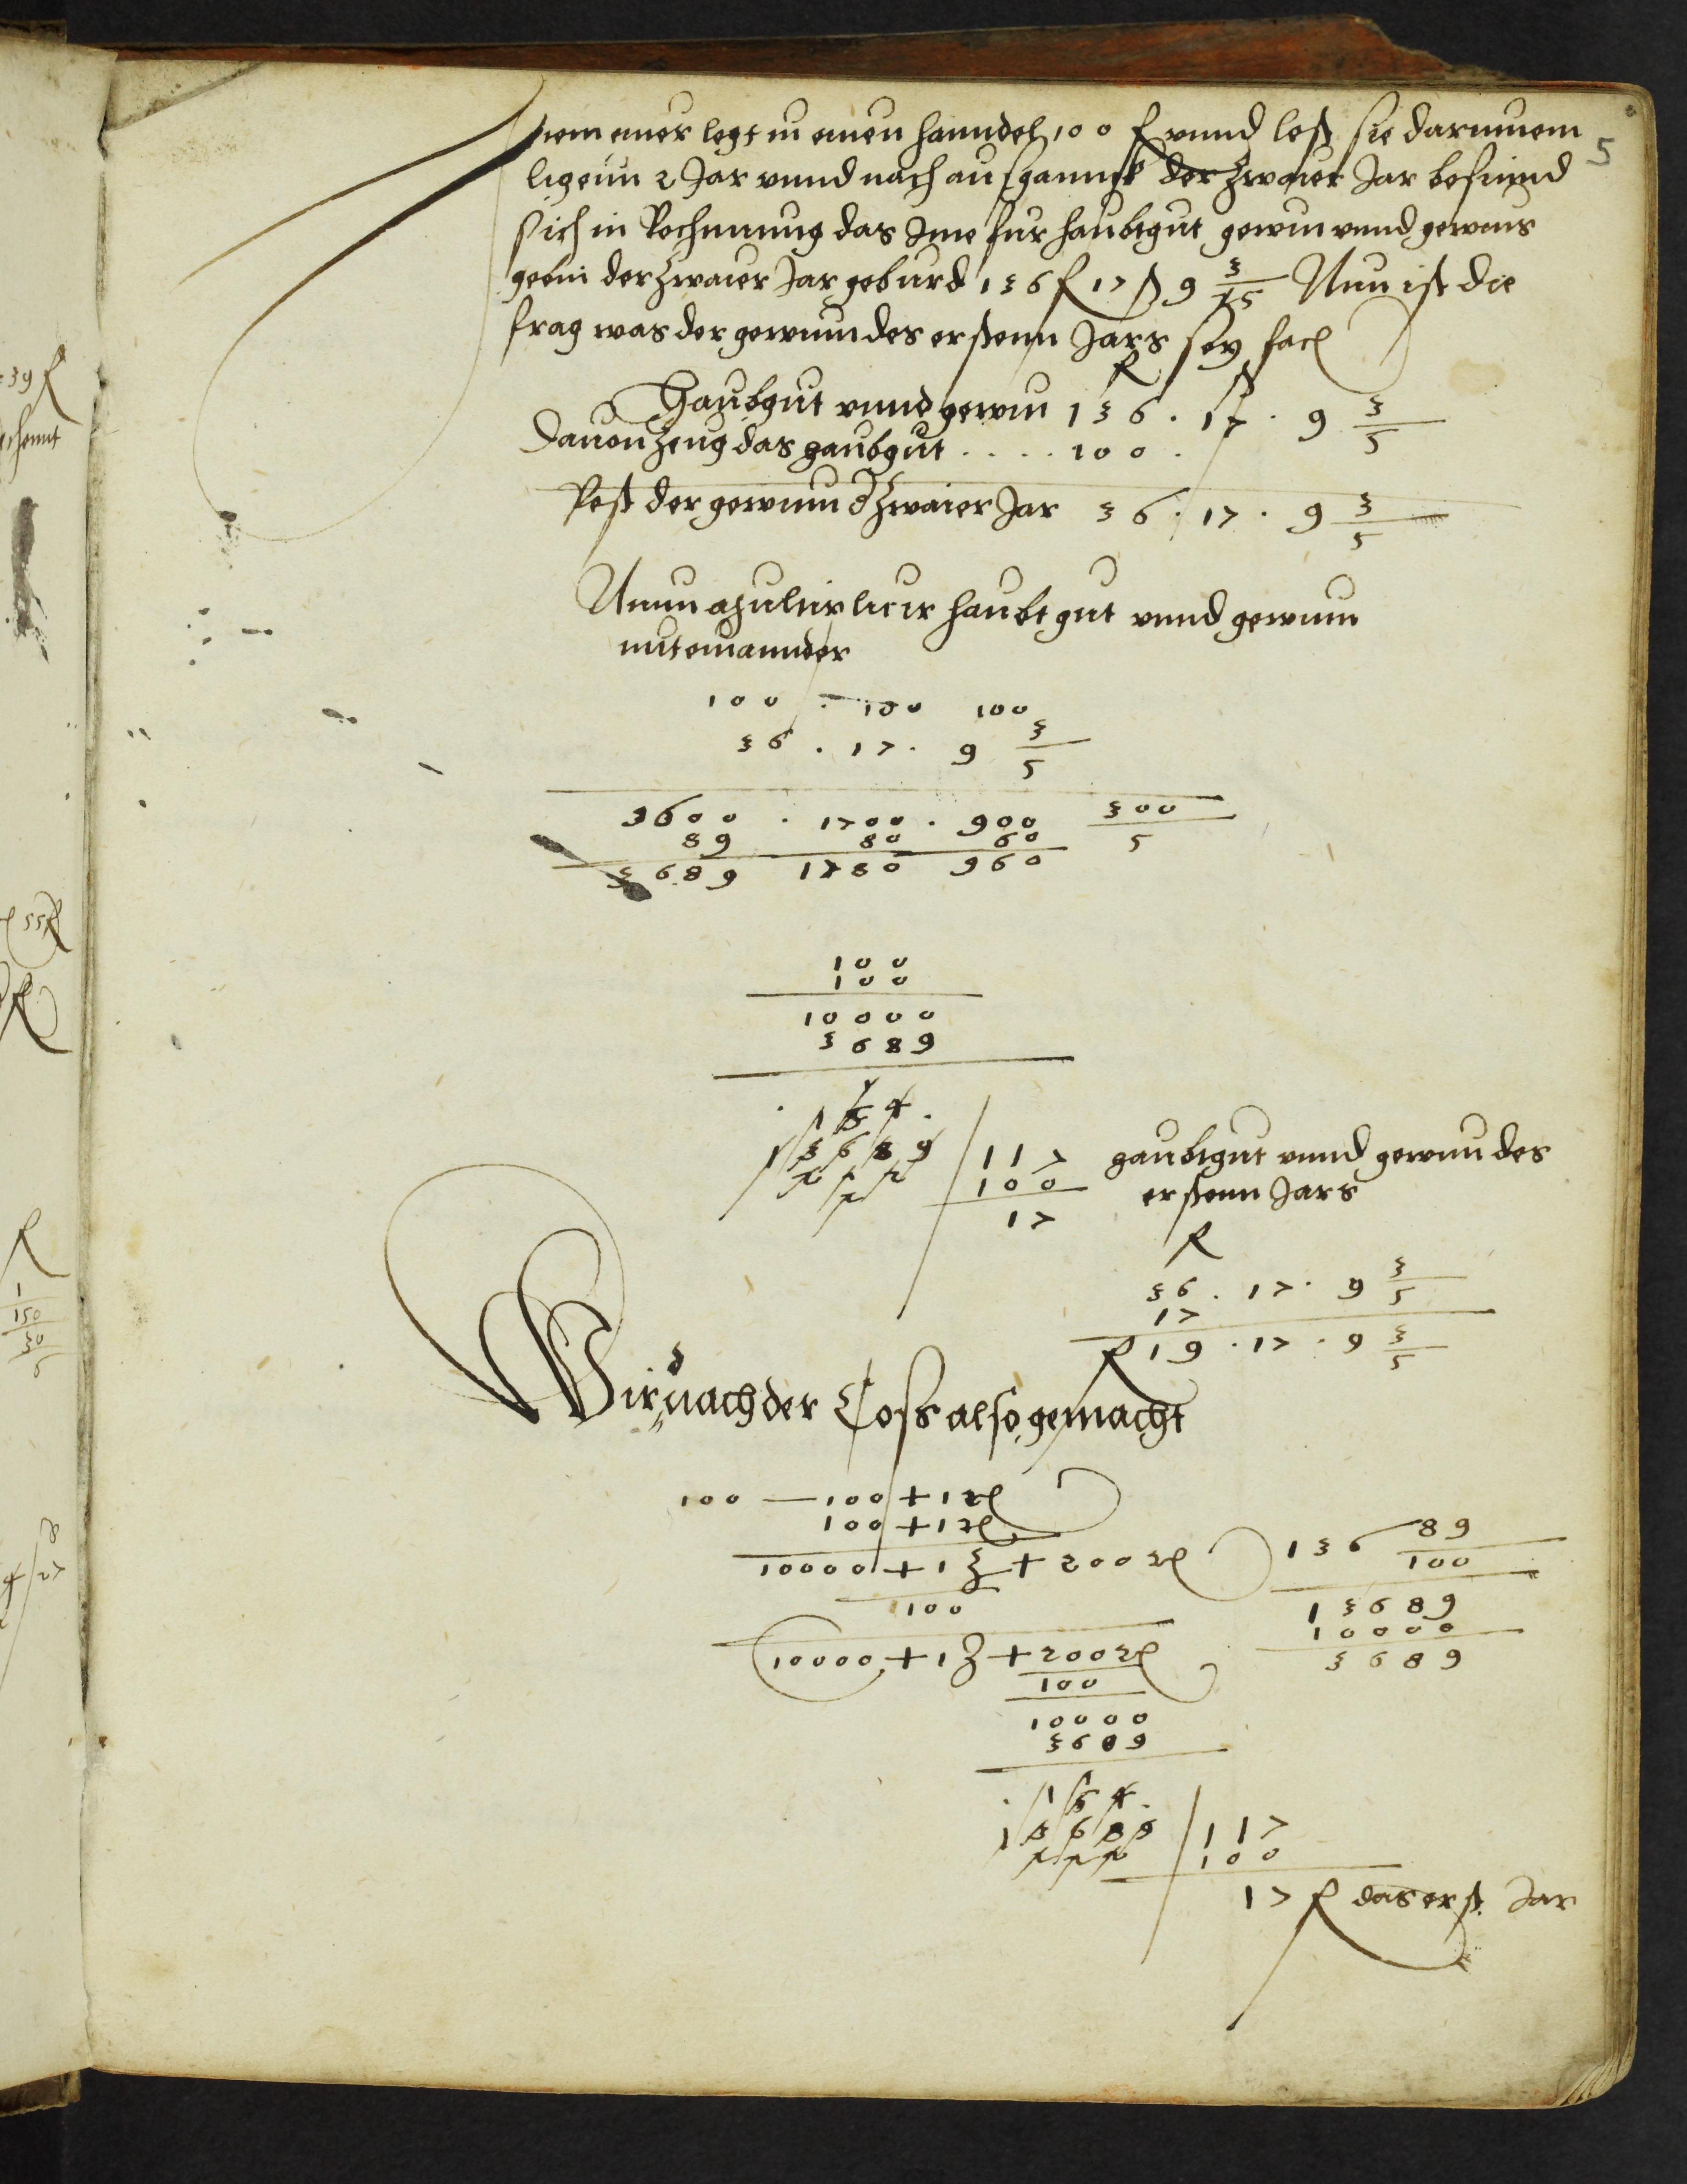 Item einer legt in einen hanndel 100 fl vnnd lest sie darinnem
5
ligenn 2 Jar vnnd nach ausganngk der zwaier Jar befinnd
sich in Rechnung das Ime fur haubtgut gewin vnnd gewins
gewin der zwaier Jar geburd 136 fl 17 ß 9 3/5 Nun ist die
frag was der gewinn des erstenn Jars sey fac
fl ß
Haubgut vnnd gewin 136 . 17 . 9 3/5
Dauon zeug das haubgut .... 100 .
Rest der gewinn d zwaier Jar 36 . 17 . 9 3/5
Nunn haubtgut vnnd gewinn
mit einannder
100 . 100 100
36 . 17 . 9 3/5
3600 . 1700 . 900 300/5
89 80 60
3689 1780 960
100
100
10000
3689
1 3 4
1 3 6 8 9 117 haubtgut vnnd gewinn des
2 2 2 100 erstenn Jars
2 17
fl
36 . 17 . 9 3/5
17
fl 19 . 17 . 9 3/5
Wird nach der Coss also gemacht
100 — 100 + 1 ℞
100 + 1 ℞
10000 + 1 ʒ + 200 ℞ 136 89/100
100
13689
10000 + 1 ʒ + 200 ℞ 10000
100 3689
10000
3689
1 6 4
1 3 6 8 9 117
2 2 2 100
17 fl das erst Jar